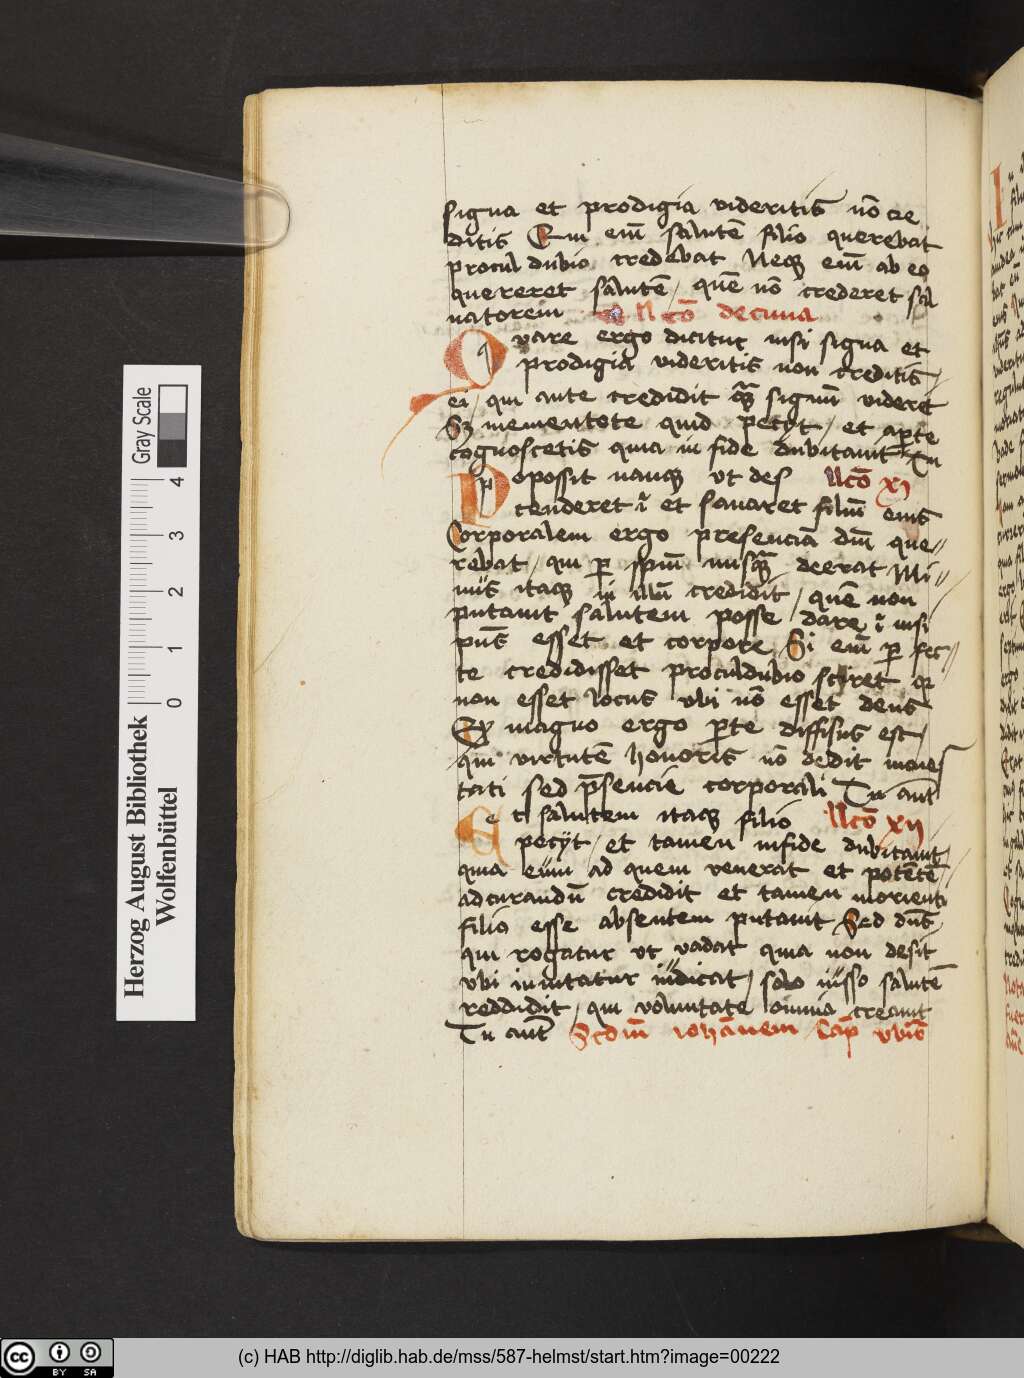 signa et prodigia videritis nō cre
ditis Qui eīn salutē filio querebat
procul dubio credebat Neqꝫ eīn ab eo
quereret salutē / quē nō crederet sal
uatorem llcō decima
Quare ergo dicitur nisi signa et
prodigia videritis non creditis /
ei / qui ante credidit qᷓ signū videret
Sꝫ mementote quid pecÿt / et aꝑte
cognoscetis quia in fide dubitauit
Popossit nanqꝫ vt des llcō xj
cenderet ⁊ et sanaret filiū eius
Corporalem ergo presenciā dn̄i que//
rebat / qui ꝑ spm̄ nusqᷓ deerat Mi//
nus itaqꝫ in illū credidit / quē non
putauit salutem posse dare ⁊ nisi
pn̄s esset et corpore Si eīn ꝑfec//
te credidisset proculdubio sciret qꝛ
non esset locus vbi nō esset deus
Ex magno ergo ꝑte diffisus est /
qui virtutē honoris nō dedit maies
tati sed p̄sencie corporali Tu aūt
Et salutem itaqꝫ filio llcō xij
pecÿt / et tamen infide dubitauit /
quia eum ad quem venerat et potētē
adcurandū credidit et tamen morienti
filio esse absentem putauit Sed dn̄s
qui rogatur vt vadat quia non desit
vbi inuitatur iudicat / solo iusso salutē
reddidit / qui voluntate omnia creauit
Tu aūt Scdm̄ iohānem Cap̄ vbis
Gray Scale
0 1 2 3 4
Herzog August Bibliothek
Wolfenbüttel
cc BY SA
(c) HAB http://diglib.hab.de/mss/587-helmst/start.htm?image=00222